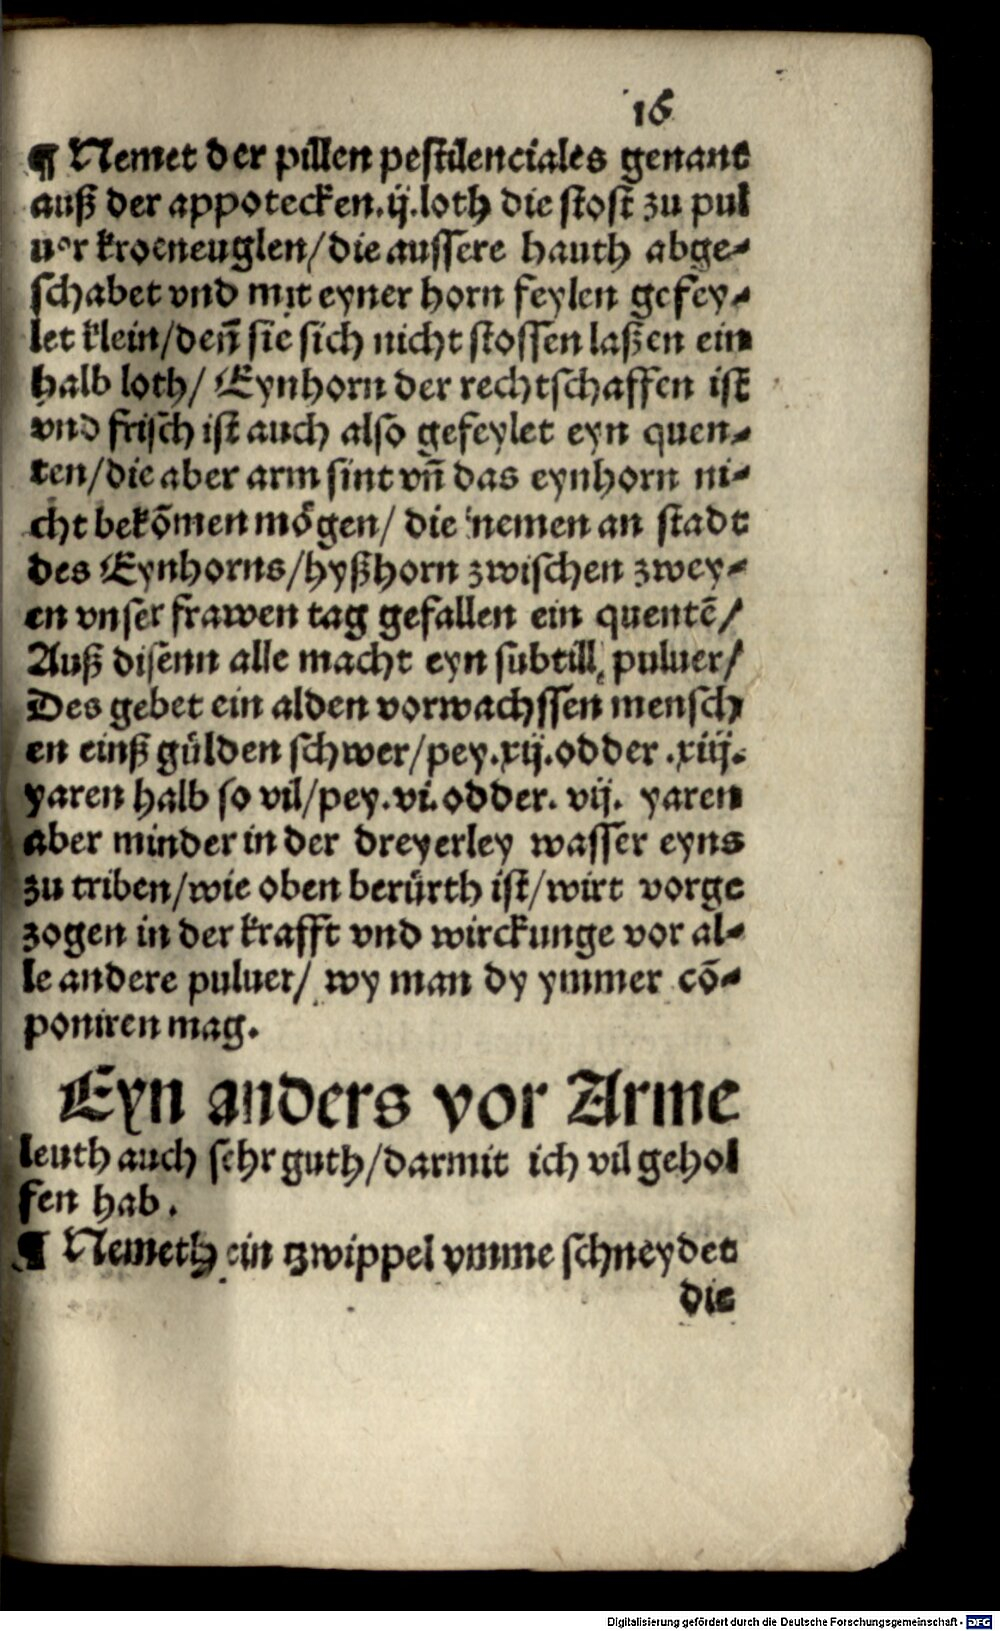 16
¶ Nemet der pillen pestilenciales genant
auß der appotecken.ij.loth die stost zu pul
uer kroeneuglen/die aussere hauth abge-
schabet vnd mit eyner horn feylen gefey-
let klein/deñ sie sich nicht stossen laßen ein
halb loth/ Eynhorn der rechtschaffen ist
vnd frisch ist auch also gefeylet eyn quen-
ten/die aber arm sint vñ das eynhorn ni-
cht bekõmen mögen/ die nemen an stadt
des Eynhorns/hyßhorn zwischen zwey-
en vnser frawen tag gefallen ein quentẽ/
Auß disenn alle macht eyn subtill puluer/
Des gebet ein alden vorwachssen mensch
en einß gülden schwer/pey.xij.odder .xiij.
yaren halb so vil/pey.vi.odder. vij. yaren
aber minder in der dreyerley wasser eyns
zu triben/wie oben berürth ist/wirt vorge
zogen in der krafft vnd wirckunge vor al-
le andere puluer/ wy man dy ymmer cõ-
poniren mag.
Eyn anders vor Arme
leuth auch sehr guth/darmit ich vil gehol
fen hab.
¶ Nemeth ein tzwippel vmme schneydet
die
Digitalisierung gefördert durch die Deutsche Forschungsgemeinschaft - DFG